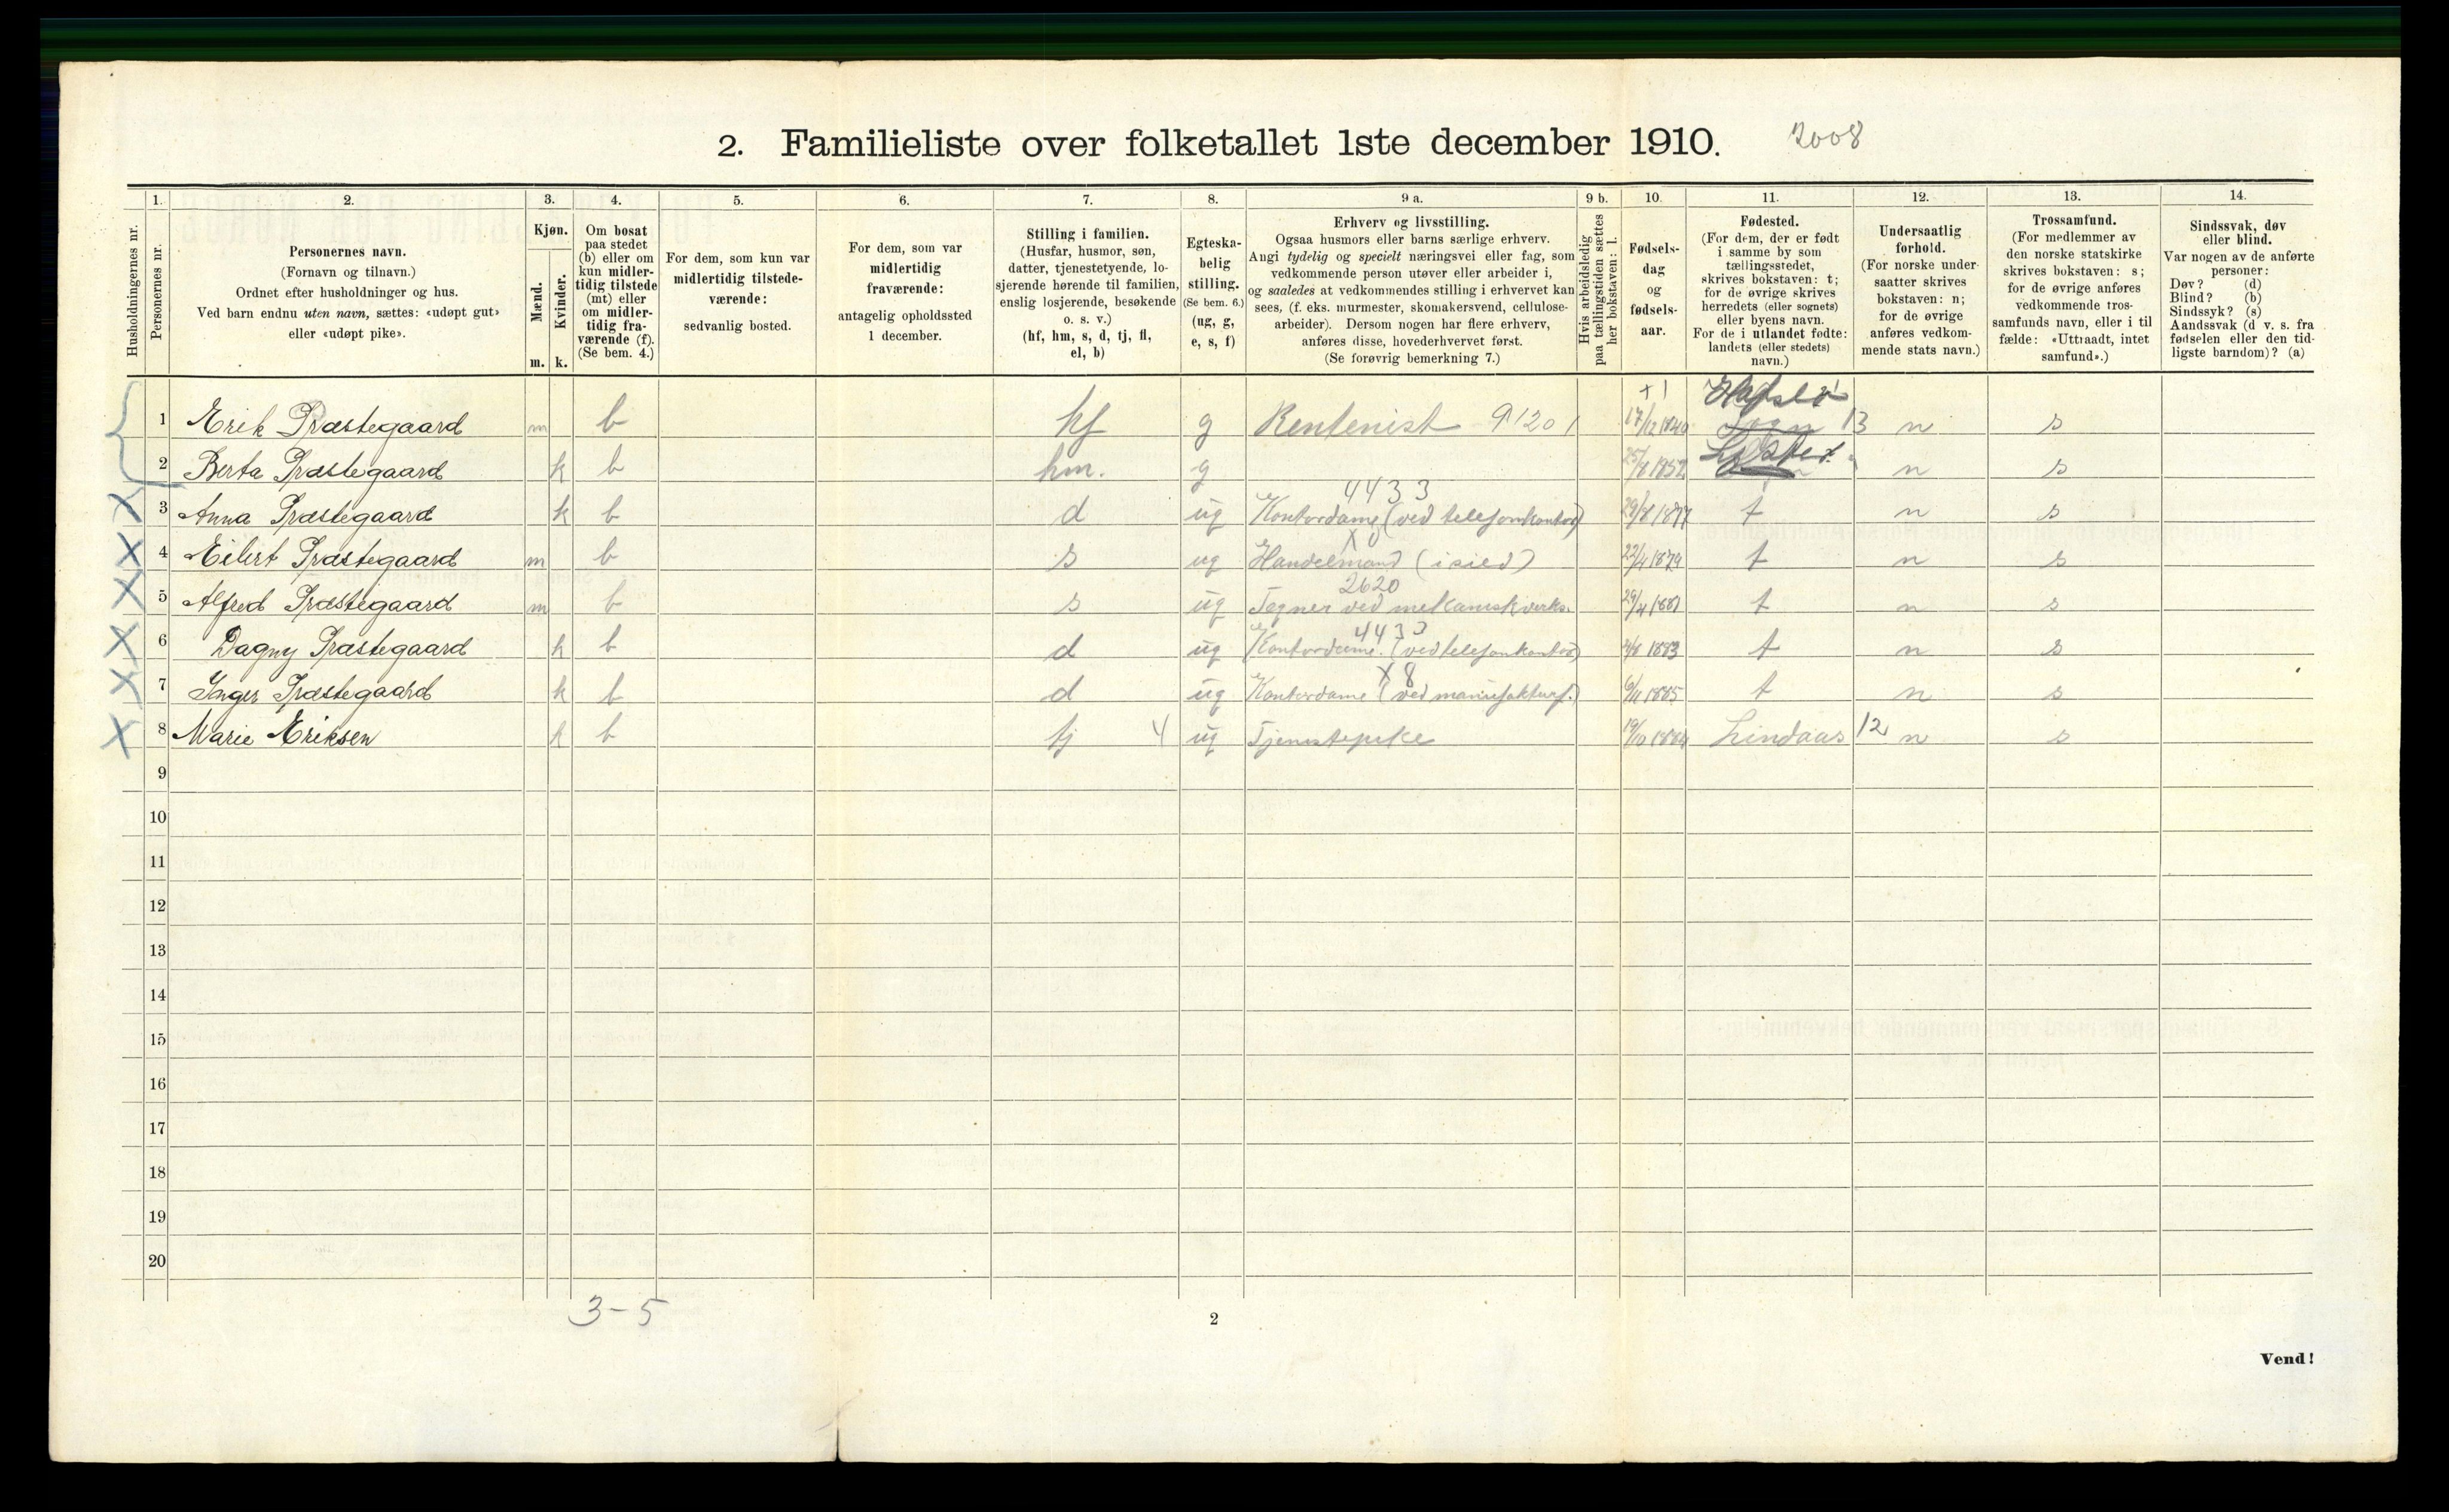 2. Familieliste over folketallet 1ste december 1910. 2008
1. 2. 3. 4. 5. 6. 7. 8. 9 a. 9 b. 10. 11. 12. 13. 14.
Husholdningernes nr.
Personernes nr.
Personernes navn.
(Fornavn og tilnavn.)
Ordnet efter husholdninger og hus.
Ved barn endnu uten navn, sættes: «udøpt gut»
eller «udøpt pike».
Kjøn.
Mænd.
Kvinder.
m. k.
Om bosat
paa stedet
(b) eller om
kun midler-
tidig tilstede
(mt) eller
om midler-
tidig fra-
værende (f).
(Se bem. 4.)
For dem, som kun var
midlertidig tilstede-
værende:
sedvanlig bosted.
For dem, som var
midlertidig
fraværende:
antagelig opholdssted
1 december.
Stilling i familien.
(Husfar, husmor, søn,
datter, tjenestetyende, lo-
sjerende hørende til familien,
enslig losjerende, besøkende
o. s. v.)
(hf, hm, s, d, tj, fl,
el, b)
Egteska-
belig
stilling.
(Se bem. 6.)
(ug, g,
e, s, f)
Erhverv og livsstilling.
Ogsaa husmors eller barns særlige erhverv.
Angi tydelig og specielt næringsvei eller fag, som
vedkommende person utøver eller arbeider i,
og saaledes at vedkommendes stilling i erhvervet kan
sees, (f. eks. murmester, skomakersvend, cellulose-
arbeider). Dersom nogen har flere erhverv,
anføres disse, hovederhvervet først.
(Se forøvrig bemerkning 7.)
Hvis arbeidsledig
paa tællingstiden sættes
her bokstaven: l.
Fødsels-
dag
og
fødsels-
aar.
Fødested.
(For dem, der er født
i samme by som
tællingsstedet,
skrives bokstaven: t;
for de øvrige skrives
herredets (eller sognets)
eller byens navn.
For de i utlandet fødte:
landets (eller stedets)
navn.)
Undersaatlig
forhold.
(For norske under-
saatter skrives
bokstaven: n;
for de øvrige
anføres vedkom-
mende stats navn.)
Trossamfund.
(For medlemmer av
den norske statskirke
skrives bokstaven: s;
for de øvrige anføres
vedkommende tros-
samfunds navn, eller i til
fælde: «Uttraadt, intet
samfund».)
Sindssvak, døv
eller blind.
Var nogen av de anførte
personer:
Døv? (d)
Blind? (b)
Sindssyk? (s)
Aandssvak (d v. s. fra
fødselen eller den tid-
ligste barndom)? (a)
+1 Hafslo
1 Erik Præstegaard m b hf g Rentenist 9120 1 17/12 1840 Sogn 13 n s
Lyster
2 Berta Præstegaard k b hm. g 25/8 1852 n s
4433
X 3 Anna Præstegaard k b d ug Kontordame (ved telefonkontor) 29/8 1877 t n s
X 4 Eilert Præstegaard m b s ug Handelsmand (i sild) 22/4 1879 t n s
2620
X 5 Alfred Præstegaard m b s ug Tegner ved mekanisk verks. 29/4 1881 t n s
4433
X 6 Dagny Præstegaard k b d ug Kontordame. (ved telefonkontor) 1883 t n s
X8
X 7 Inger Præstegaard k b d ug Kontordame (ved manufakturf.) 6/11 1885 t n s
X 8 Marie Eriksen k b tj 4 ug Tjenestepike 19/10 1884 Lindaas 12 n s
9
10
11
12
13
14
15
16
17
18
19
20
3-5
2
Vend!